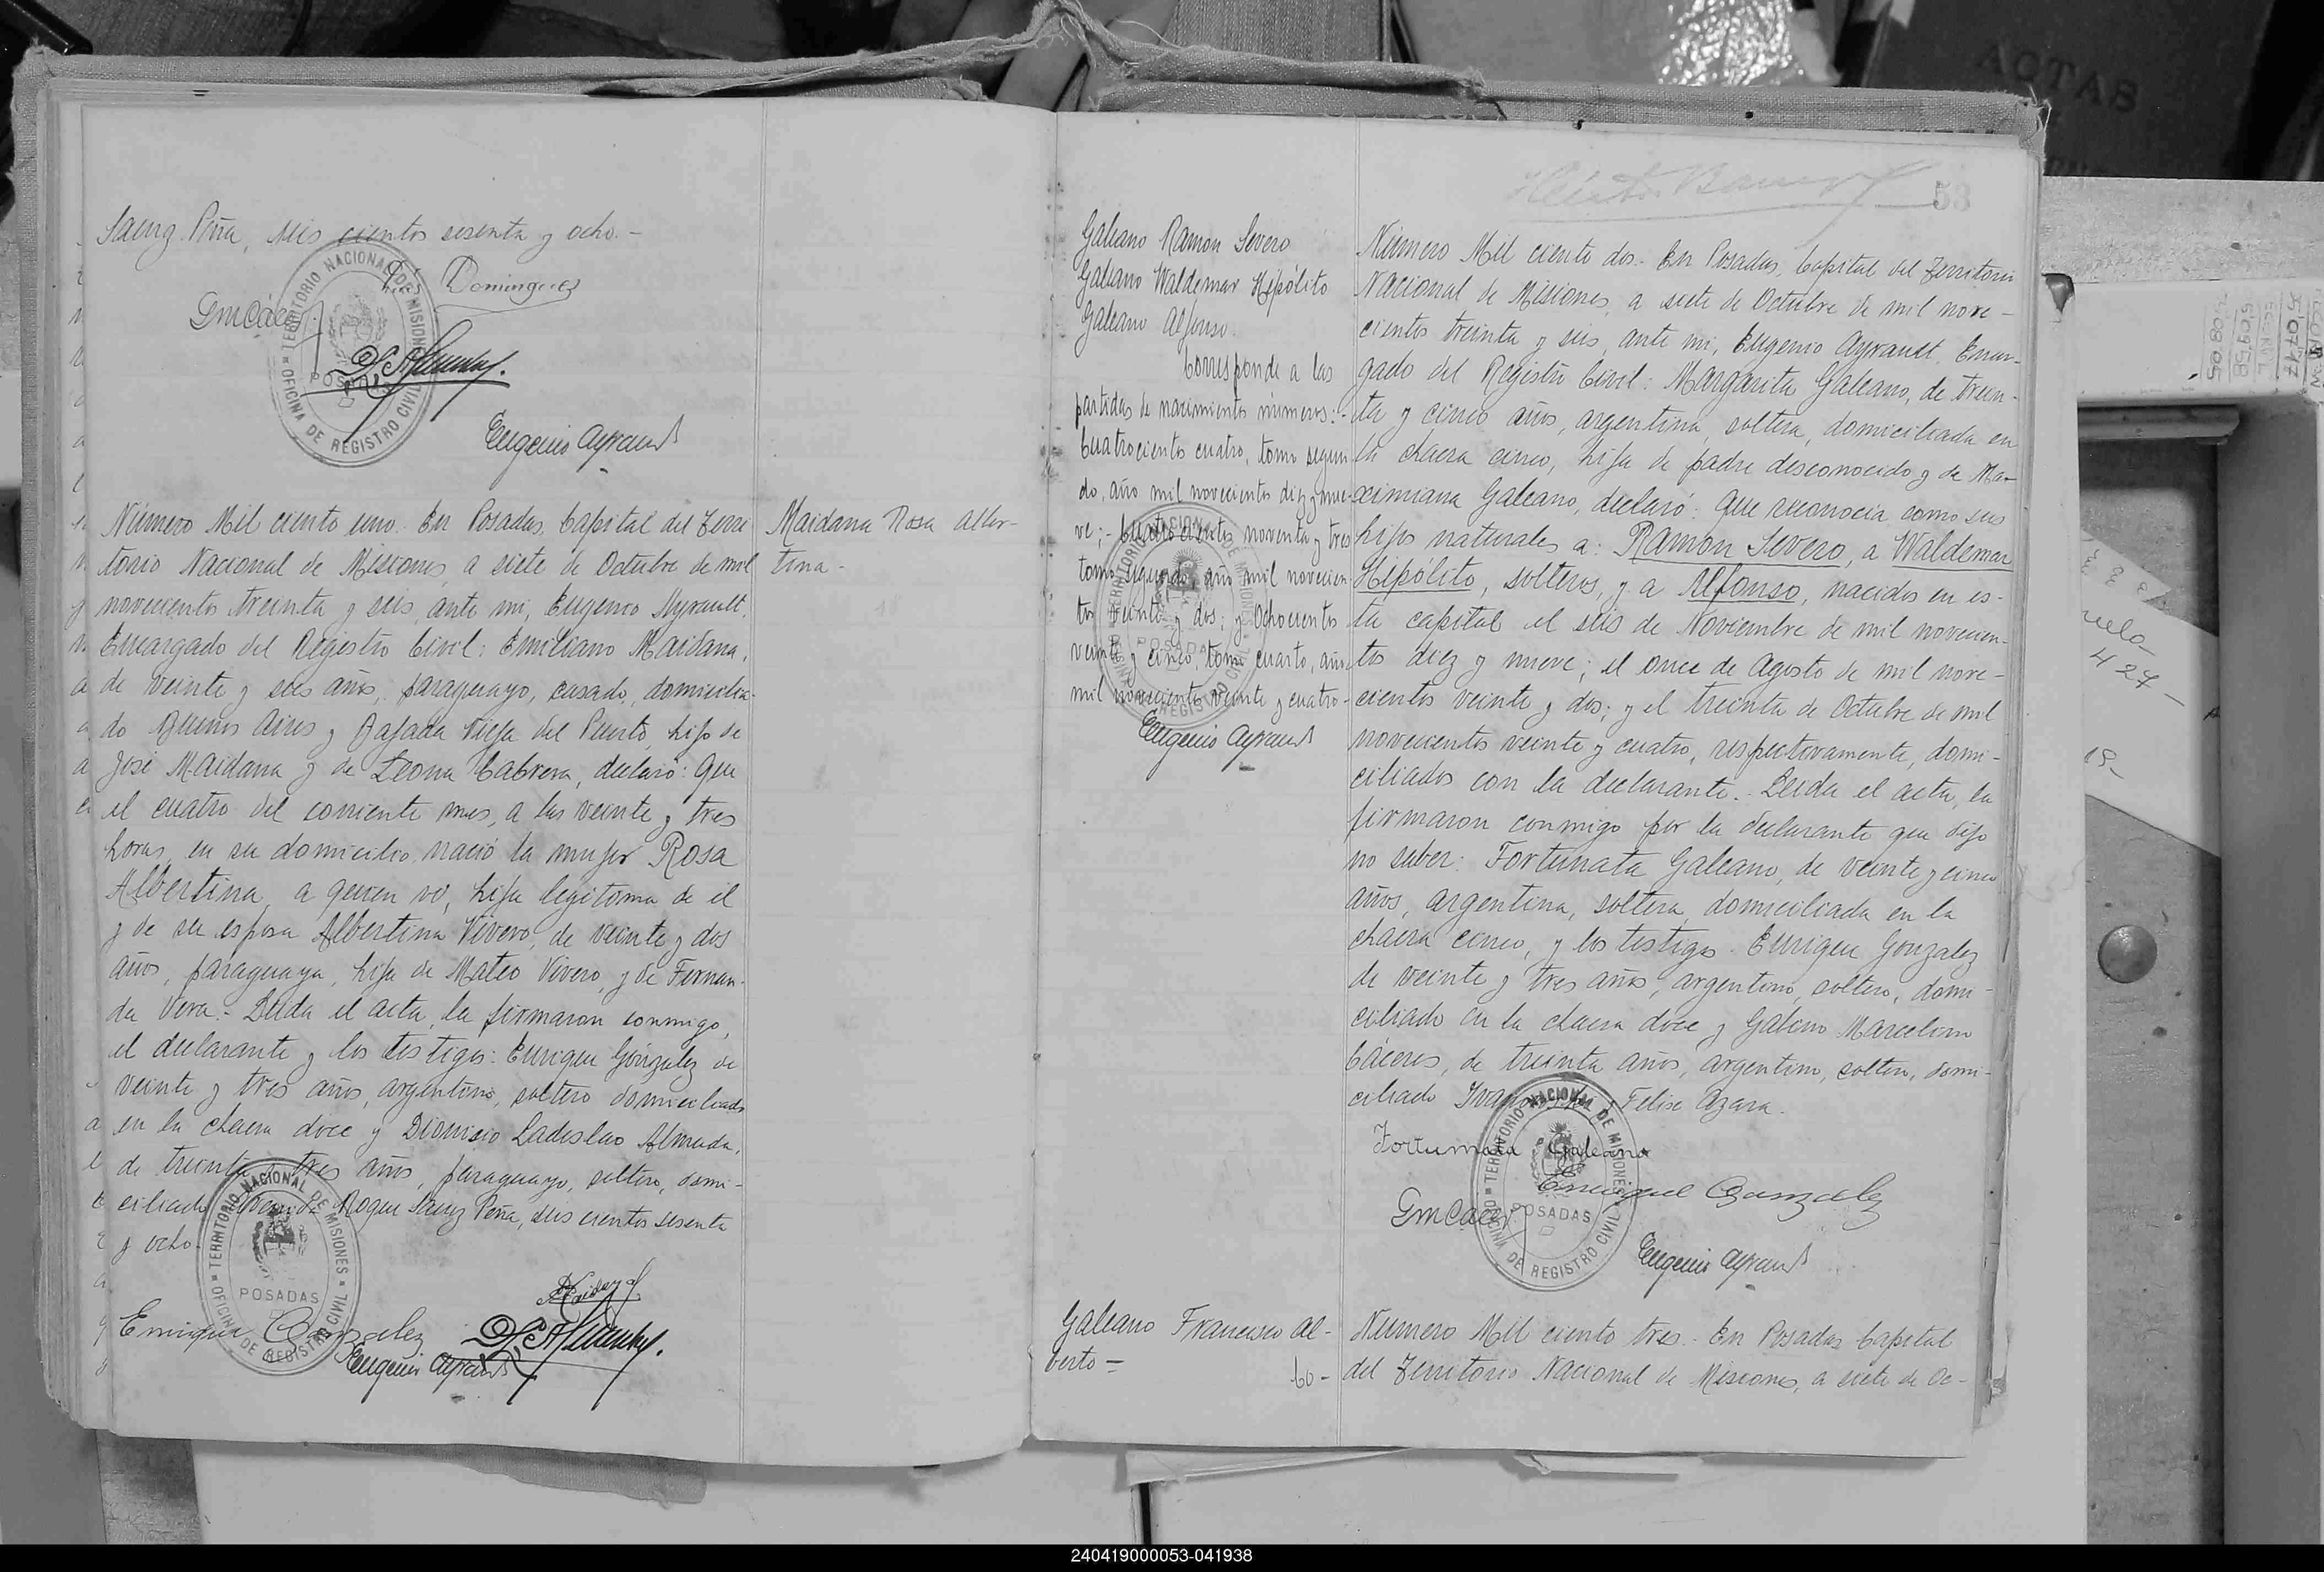 Saenz Peña, seis cientos sesenta y ocho.-
Dominguez
GmCáceres
TERRITORIO NACIONAL DE MISIONES
POSADAS
OFICINA DE REGISTRO CIVIL
Eugenio Ayrault
Número Mil ciento uno. En Posadas, Capital del Terri
torio Nacional de Misiones, a siete de Octubre de mil
novecientos treinta y seis, ante mi, Eugenio Ayrault.
Encargado del Registro Civil: Emiliano Maidana,
de veinte y seis años, paraguayo, casado, domicilia-
do Buenos Aires y Bajada Vieja del Puerto, hijo de
José Maidana y de Leona Cabrera, declaró: Que
el cuatro del corriente mes, a las veinte y tres
horas, en su domicilio, nació la mujer Rosa
Albertina, a quien vi, hija legitima de él
y de su esposa Albertina Vivero, de veinte y dos
años, paraguaya, hija de Mateo Vivero, y de Fernan-
da Vera.- Leida el acta, la firmaron conmigo,
el declarante y los testigos: Enrique González de
veinte y tres años, argentino, soltero domiciliado
en la chacra doce y Dionisio Ladislao Almada,
de treinta y tres años, paraguayo, soltero, domi-
ciliado Avenida Roque Saenz Peña, seis cientos sesenta
y ocho.
TERRITORIO NACIONAL DE MISIONES
POSADAS
OFICINA DE REGISTRO CIVIL
Enrique Gonzalez
Eugenio Ayrault
Maidana Rosa Alber-
tina-
53
Galeano Ramon Severo
Galeano Waldemar Hipólito
Galeano Alfonso.
Corresponde a las
partidas de nacimientos números:-
Cuatrocientos cuatro, tomo segun-
do, año mil novecientos diez y nue-
ve;- Cuatrocientos noventa y tres
tomo segundo, año mil novecien-
tos veinte y dos; y Ochocientos
veinte y cinco, tomo cuarto, año
mil novecientos veinte y cuatro-
Eugenio Ayrault
TERRITORIO NACIONAL DE MISIONES
POSADAS
OFICINA DE REGISTRO CIVIL
Número Mil ciento dos.- En Posadas, Capital del Territorio
Nacional de Misiones, a siete de Octubre de mil nove-
cientos treinta y seis, ante mi, Eugenio Ayrault, Encar-
gado del Registro Civil: Margarita Galeano, de trein-
ta y cinco años, argentina, soltera, domiciliada en
la chacra cinco, hija de padre desconocido y de Ma-
ximiana Galeano, declaró: Que reconocia como sus
hijos naturales a: Ramon Severo, a Waldemar
Hipólito, solteros, y a Alfonso, nacidos en es-
ta capital el seis de Noviembre de mil novecien-
tos diez y nueve; el once de Agosto de mil nove-
cientos veinte y dos; y el treinta de Octubre de mil
novecientos veinte y cuatro, respectivamente, domi-
ciliados con la declarante.- Leida el acta, la
firmaron conmigo por la declarante que dijo
no saber: Fortunata Galeano, de veinte y cinco
años, argentina, soltera, domiciliada en la
chacra cinco, y los testigos Enrique Gonzalez
de veinte y tres años, argentino, soltero, domi-
ciliado en la chacra doce y Gabino Marcelino
Cáceres, de treinta años, argentino, soltero, domi-
ciliado Felix Azara.
Fortunata Galeano
Enrique Gonzalez
GmCáceres
Eugenio Ayrault
TERRITORIO NACIONAL DE MISIONES
POSADAS
OFICINA DE REGISTRO CIVIL
Galeano Francisco Al-
berto=
Co-
Número Mil ciento tres.- En Posadas Capital
del Territorio Nacional de Misiones, a siete de Oc-
ACTAS
427-
19-
240419000053-041938